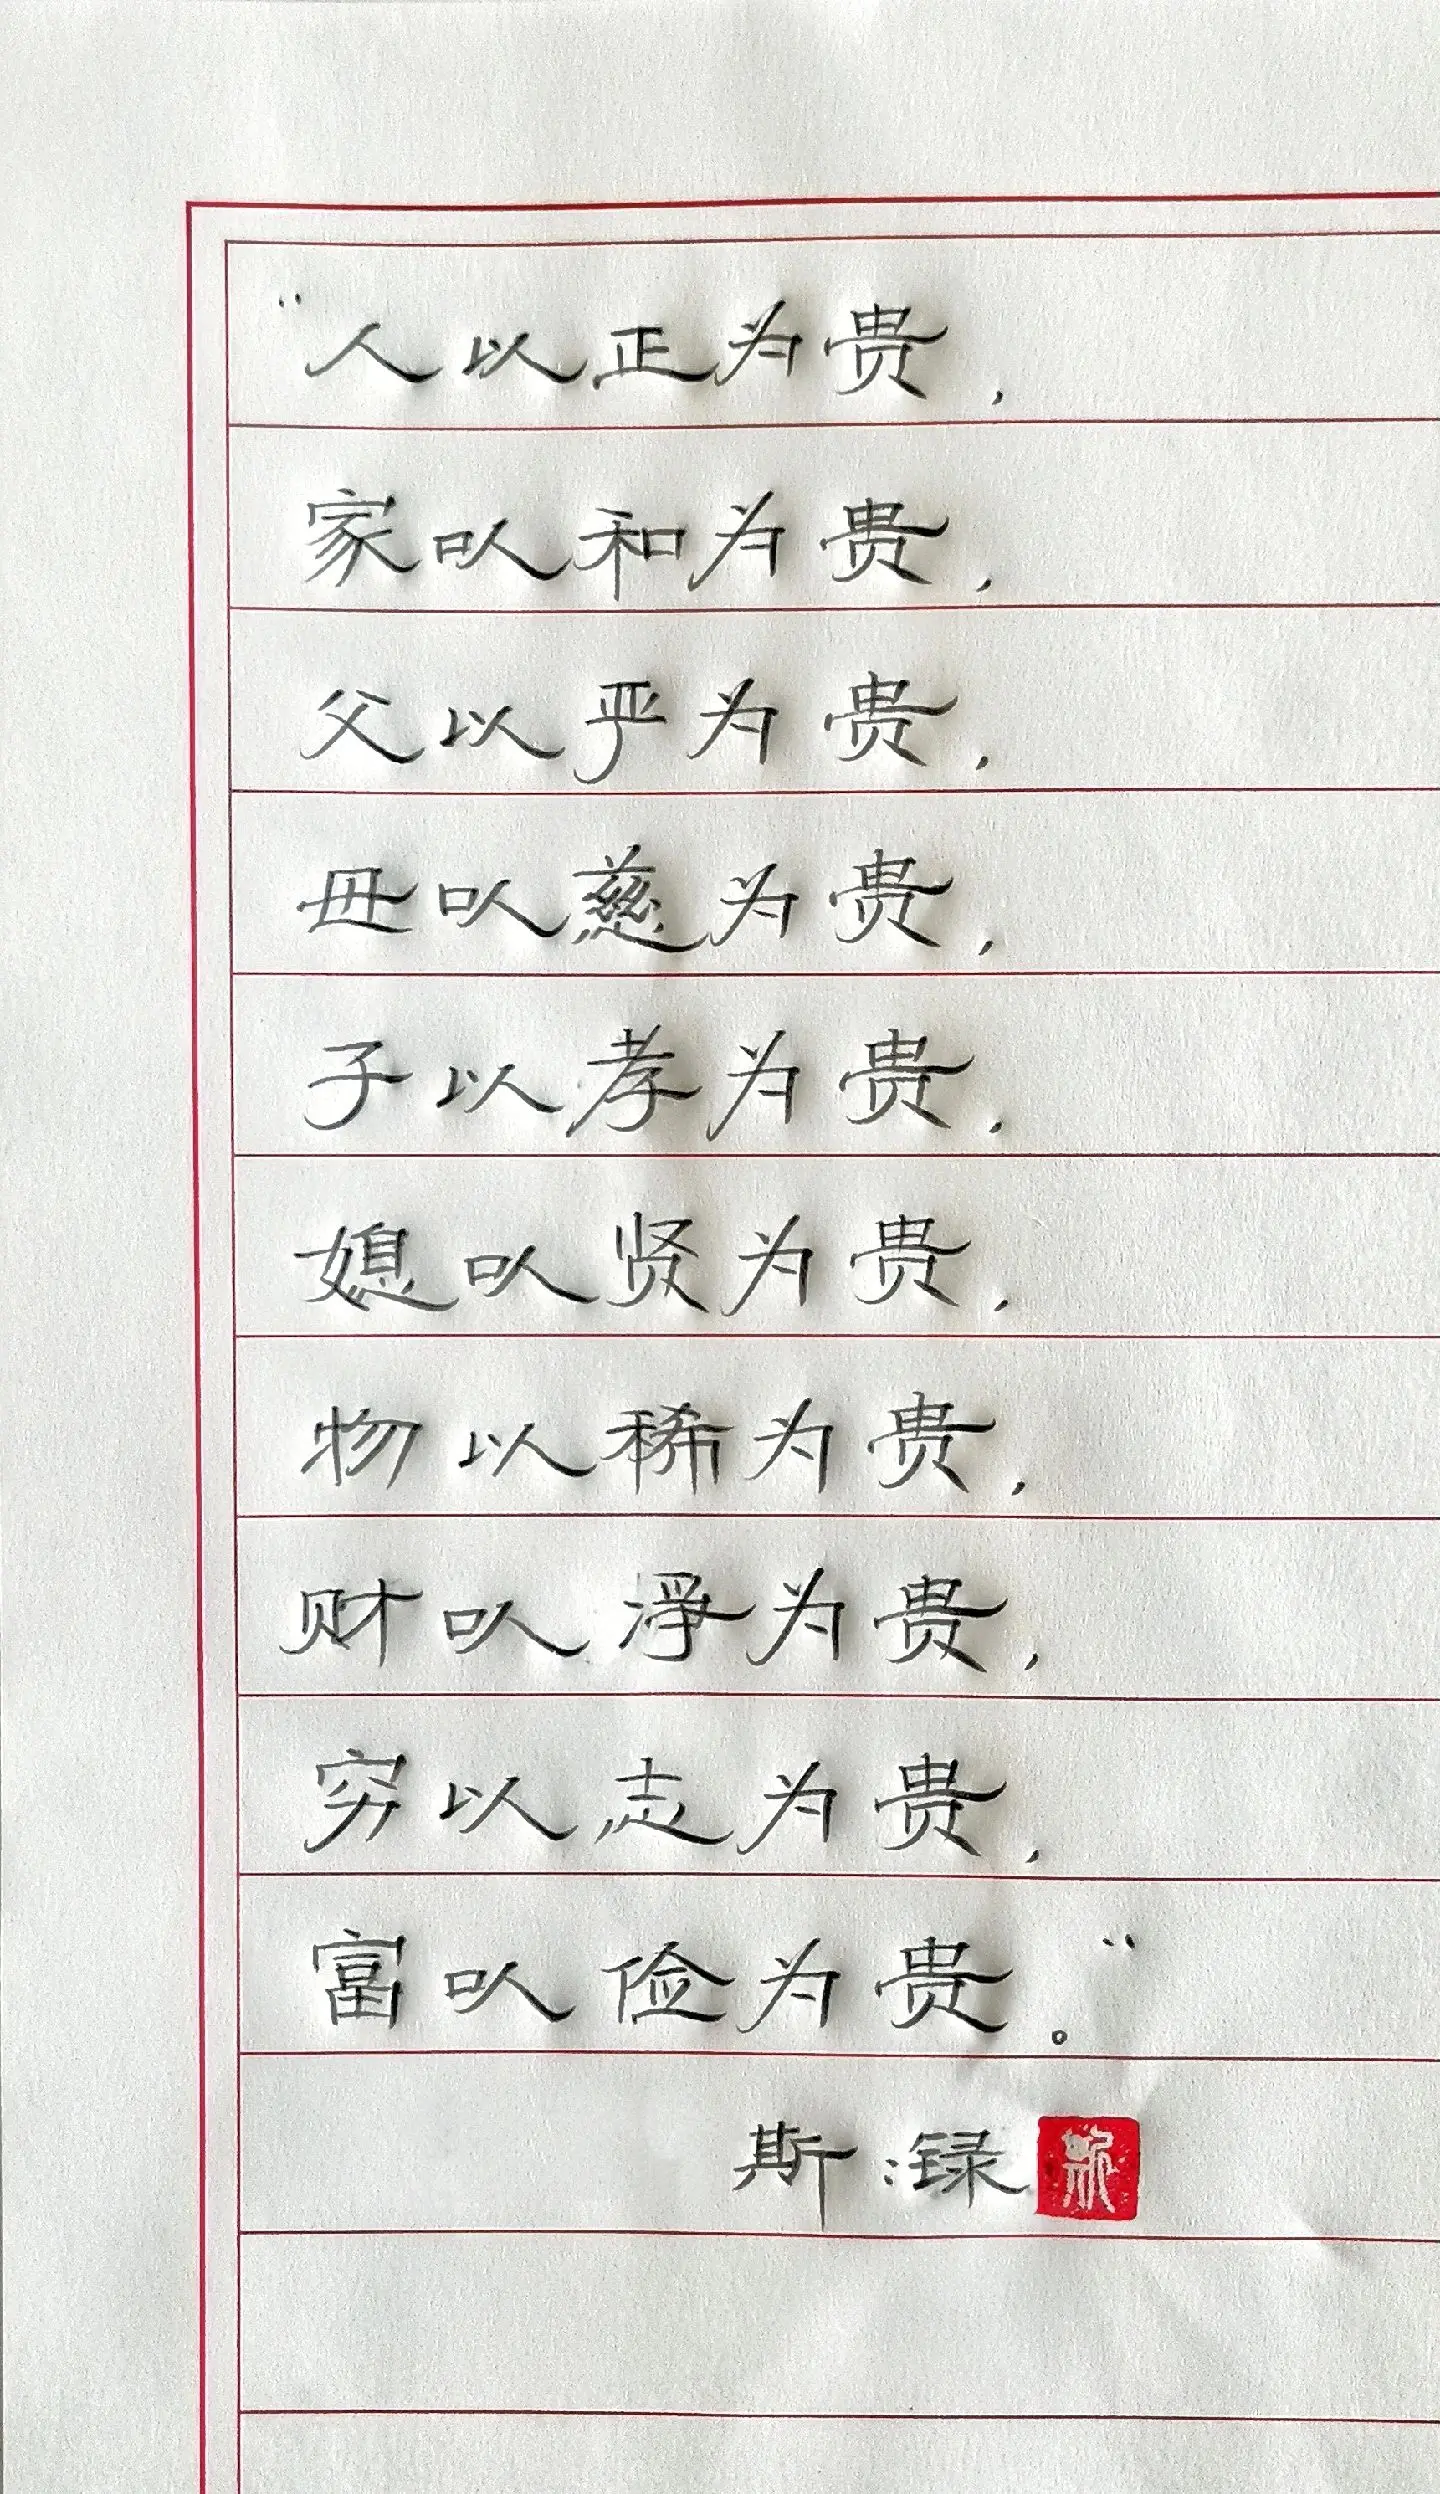 “人以正为贵，
家以和为贵，
父以严为贵，
母以慈为贵，
子以孝为贵，
媳以贤为贵，
物以稀为贵，
财以净为贵，
穷以志为贵，
富以俭为贵。”
斯：録